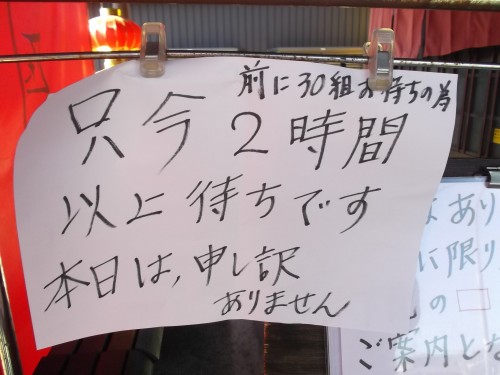 前に30組お待ちの為
只今2時間
以上待ちです
本日は,申し訳
ありません
はあり
に限り
の
ご案内とな